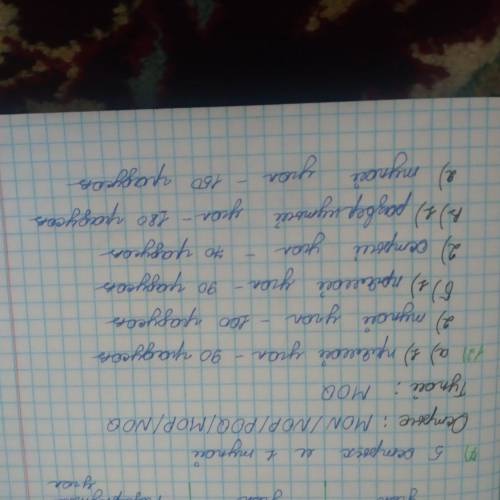 угол угол
угол
7) 5 острых и 1 тупой
Острые: MON/NOP/POQ/MOP/NOQ
Тупой: MOQ
12) а) 1) прямой угол - 90 градусов
2) тупой угол - 100 градусов
б) 1) прямой угол - 90 градусов
2) острый угол - 70 градусов
в) 1) развернутый угол - 180 градусов
2) тупой угол - 150 градусов